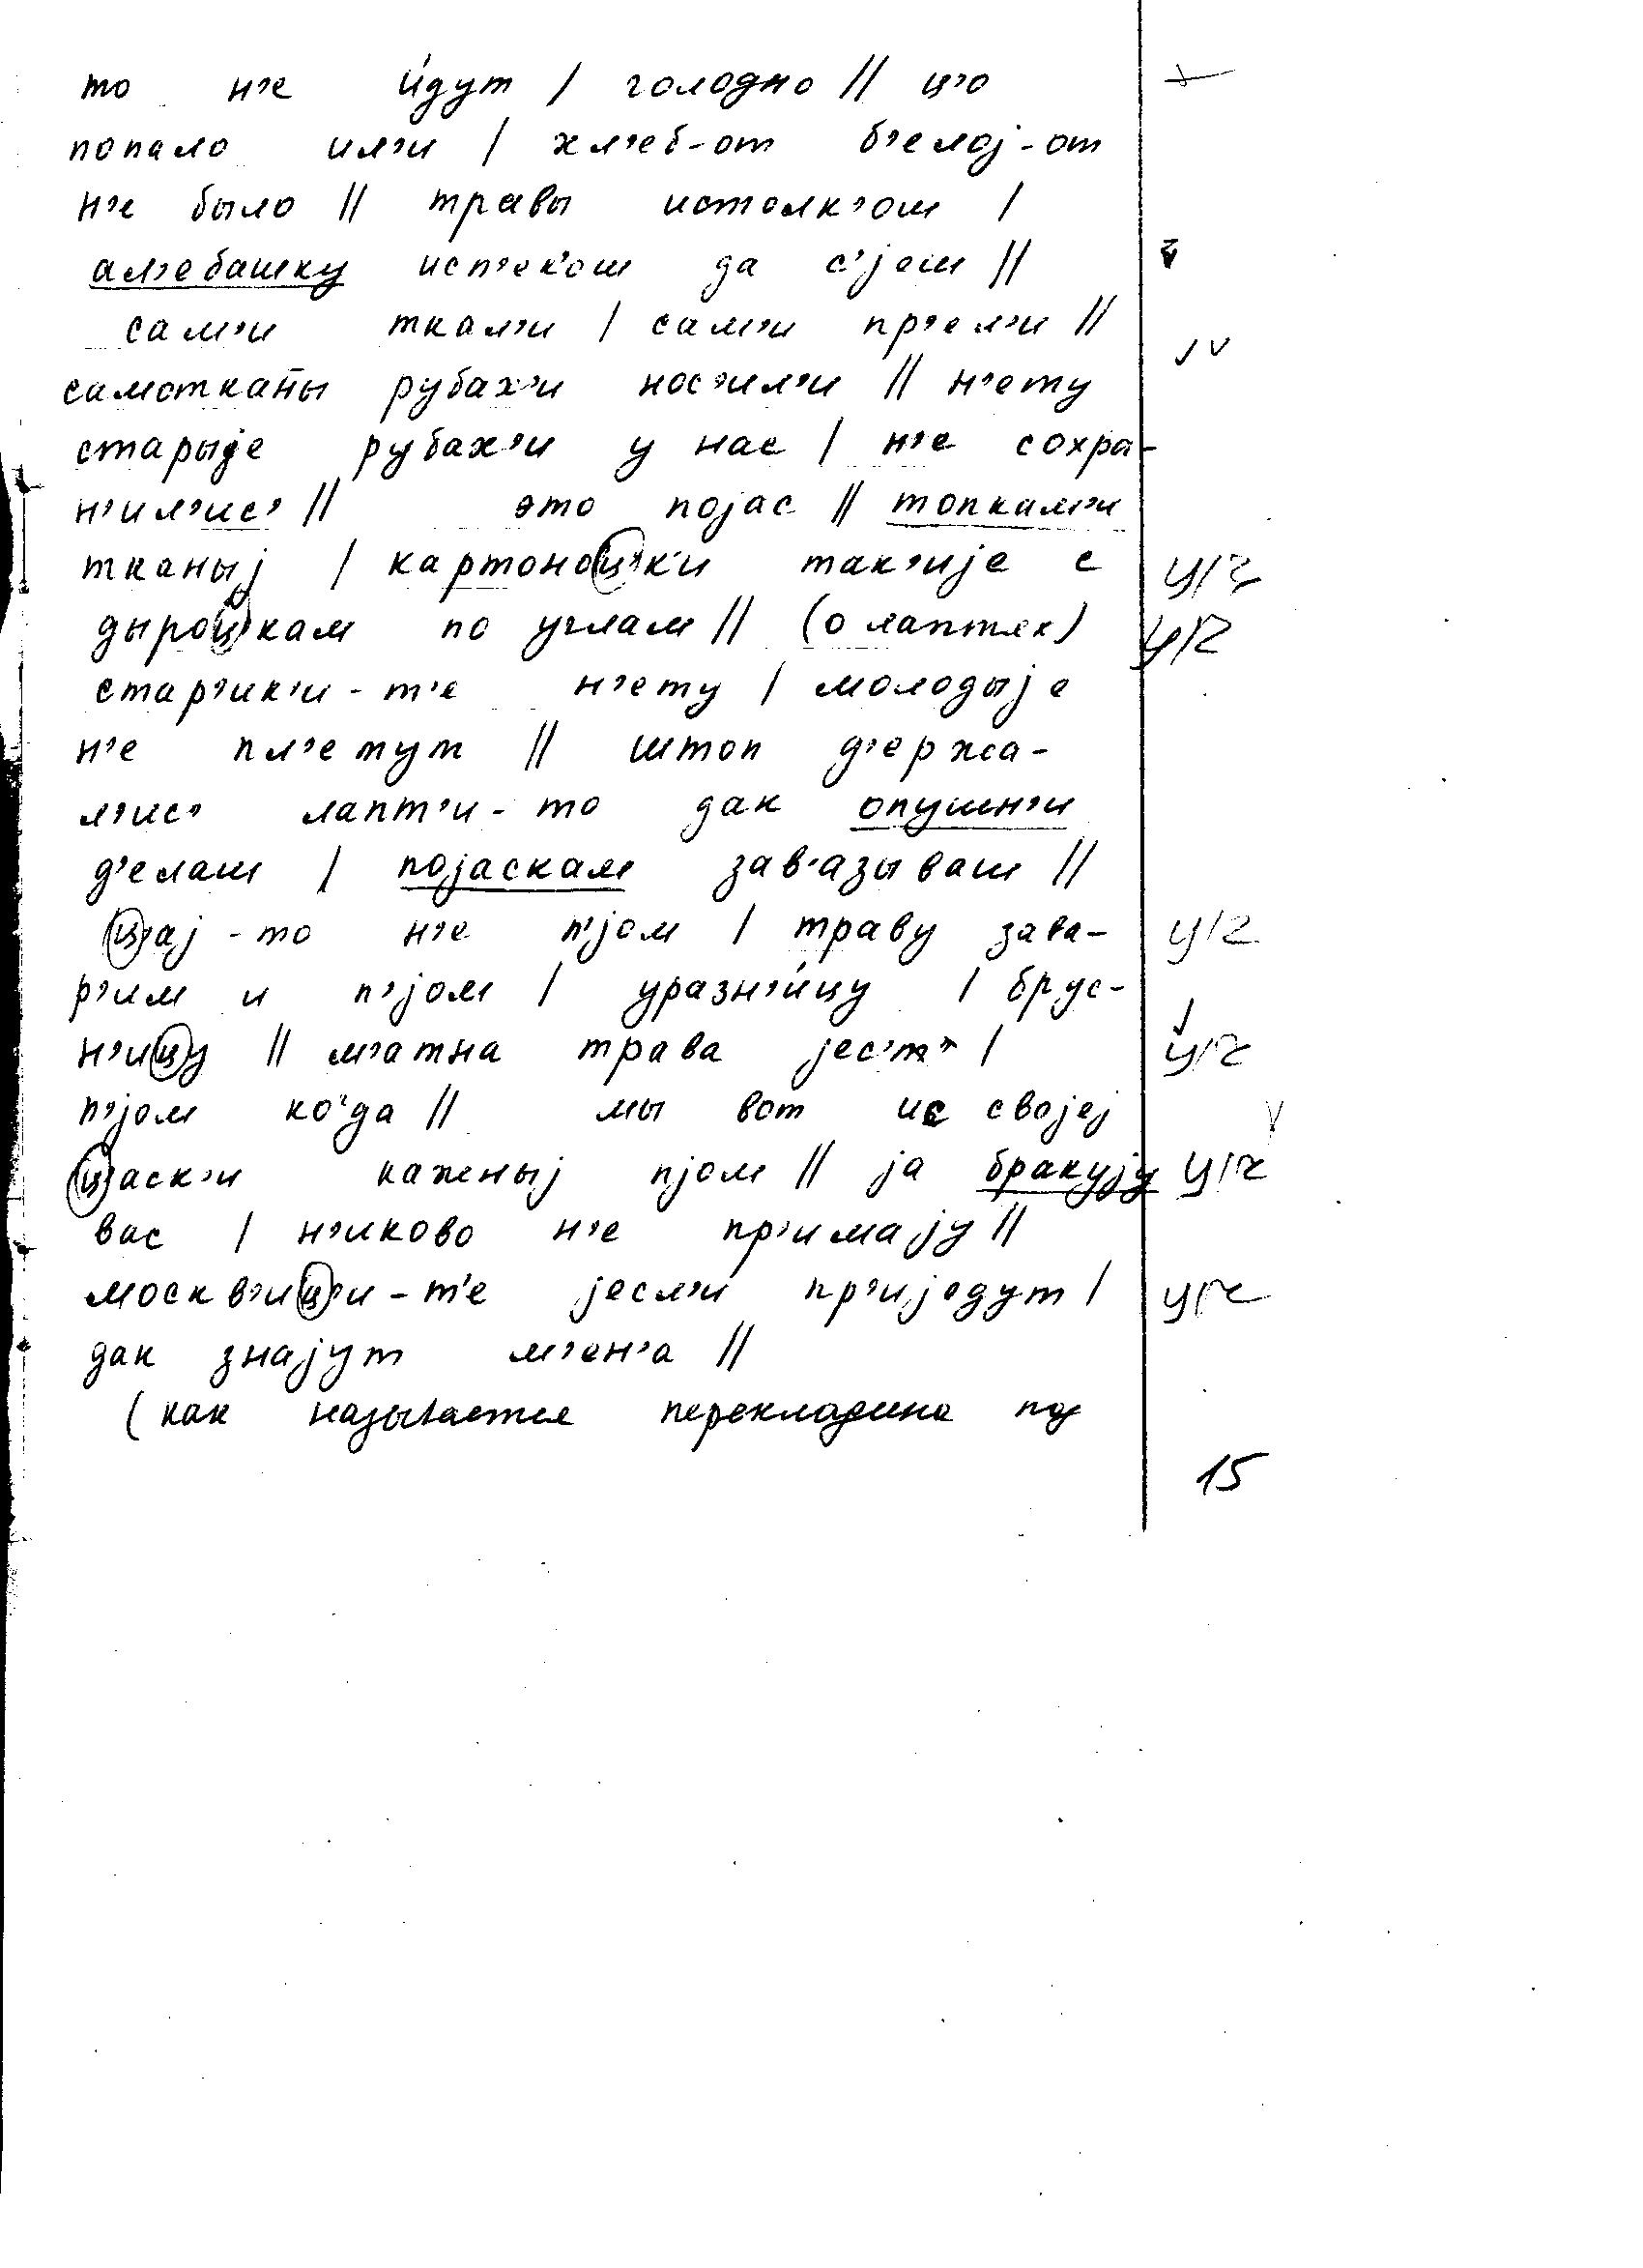 то н'е и́дут / голодно // ц'о +
попало ил'и / хл'еб-от б'елој-от
н'е было // травы истолк'ош /
ал'ебашку исп'ек'ош да с'јеш //
сам'и ткал'и / сам'и пр'ел'и //
самотканы рубах'и нос'ил'и // н'ету
старыје рубах'и у нас / н'е сохра-
н'ил'ис' // это појас // топкам'и
тканыј / картоноц'к'и так'ије с ц/ч
дыроцкам по углам // (о лаптях) ц/ч
стар'ик'и-т'е н'ету / молодыје
н'е пл'етут // штоп д'ержа-
л'ис' лапт'и-то дак опушн'и
д'елаш / појаскам зав'азываш //
ц'ај-то н'е п'јом / траву зава- ц/ч
р'им и п'јом / уразн'и́цу / брус-
н'ицу // м'атна трава јес'т' / ц/ч
п'јом ко'да // мы вот ис својеј
цаск'и каженыј пјом // ја бракују ц/ч
вас / н'иково н'е пр'имају //
москв'иц'и-т'е јесл'и пр'иједут / ц/ч
дак знајут м'ен'а //
(как называется перекладина под
15